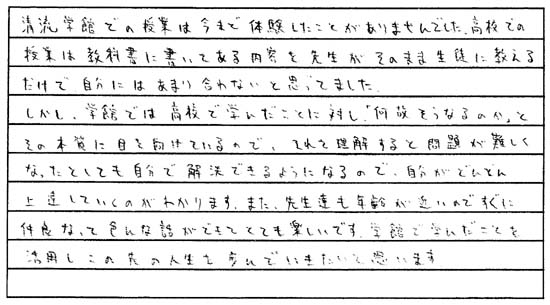 清流学館での授業は今まで体験したことがありませんでした。高校での
授業は教科書に書いてある内容を先生がそのまま生徒に教える
だけで自分にはあまり合わないと思ってました。
しかし、学館では高校で学んだことに対し「何故そうなるのか」と
その本質に目を向けているので、それを理解すると問題が難しく
なったとしても自分で解決できるようになるので、自分がどんどん
上達していくのがわかります。また、先生達も年齢が近いのですぐに
仲良くなって色んな話ができてとても楽しいです。学館で学んだことを
活用しこの先の人生も歩んでいきたいと思います